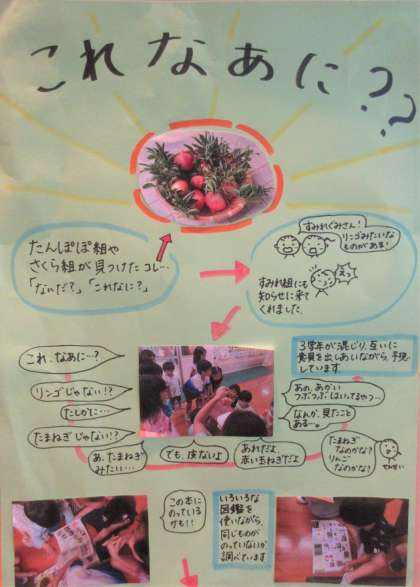 これなあに??
たんぽぽ組や
さくら組が見つけたコレ…
「なんだ?」「これなに?」
すみれぐみさん!
リンゴみたいな
ものがある!
えっ
すみれ組にも
知らせに来て
くれました。
これ、なあに…?
リンゴじゃない!?
たしかに…
たまねぎじゃない!?
あ、たまねぎ
みたい…
でも、皮ないよ
あれだよ、
赤い玉ねぎだよ
3学年が混じり、互いに
意見を出しあいながら、予想
しています。
あの、あかい
つぶつぶはいってるやつ…
なんか、見たこと
ある…。
たまねぎ
なのかな?
りんご
なのかな?
この本に
のっている
かも!!
いろいろな
図鑑を
使いながら、
同じものが
のっていないか
調べています